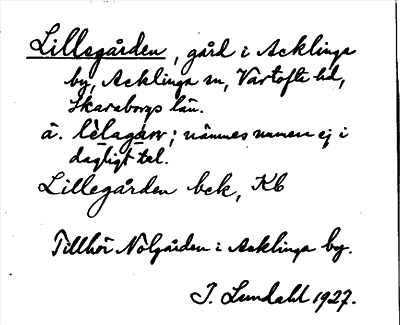 Lillegården, gård i Acklinga
by, Acklinga sn, Vartofta hd,
Skaraborgs län.
ä. lèlagaɷ; nämnes numera ej i
dagligt tal.
Lillegården bek, Kb
Tillhör Nolgården i Acklinga by.
J. Lundahl 1927.